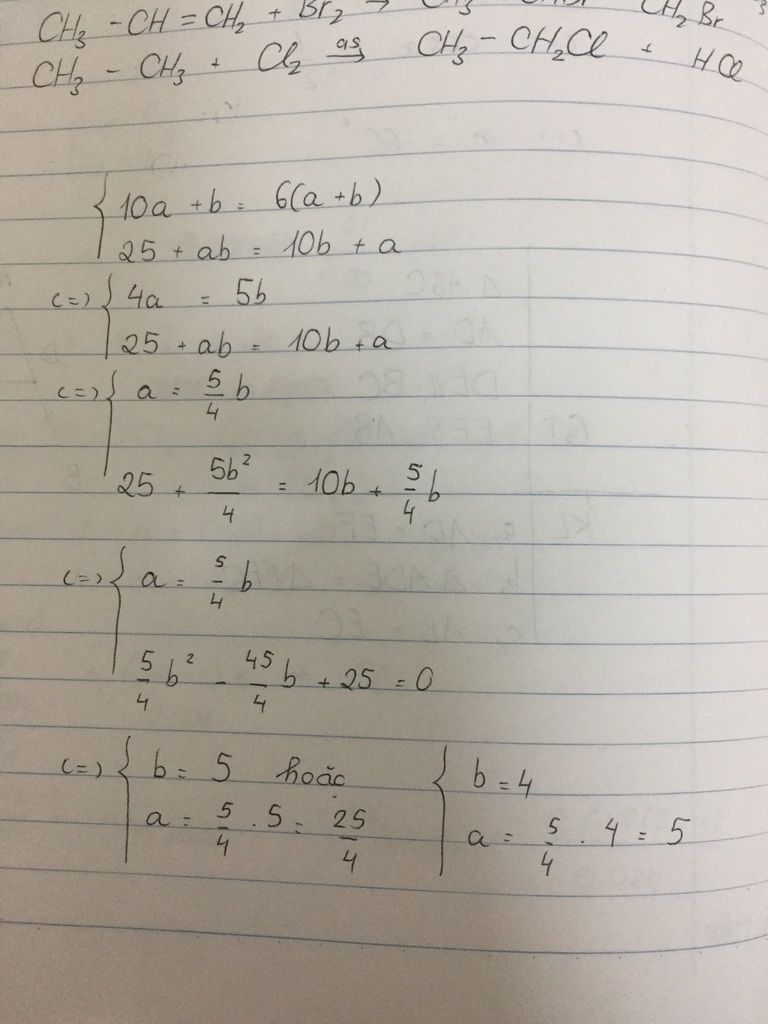 CH₃ - CH = CH₂ + Br₂ → CH₂Br
CH₃ - CH₃ + Cl₂ as→ CH₃ - CH₂Cl + HCl
{ 10a + b = 6(a + b)
25 + ab = 10b + a
(=) { 4a = 5b
25 + ab = 10b + a
(=) { a = 5/4 b
25 + 5b²/4 = 10b + 5/4 b
(=) { a = 5/4 b
5/4 b² - 45/4 b + 25 = 0
(=) { b = 5 hoặc { b = 4
a = 5/4 . 5 = 25/4 a = 5/4 . 4 = 5